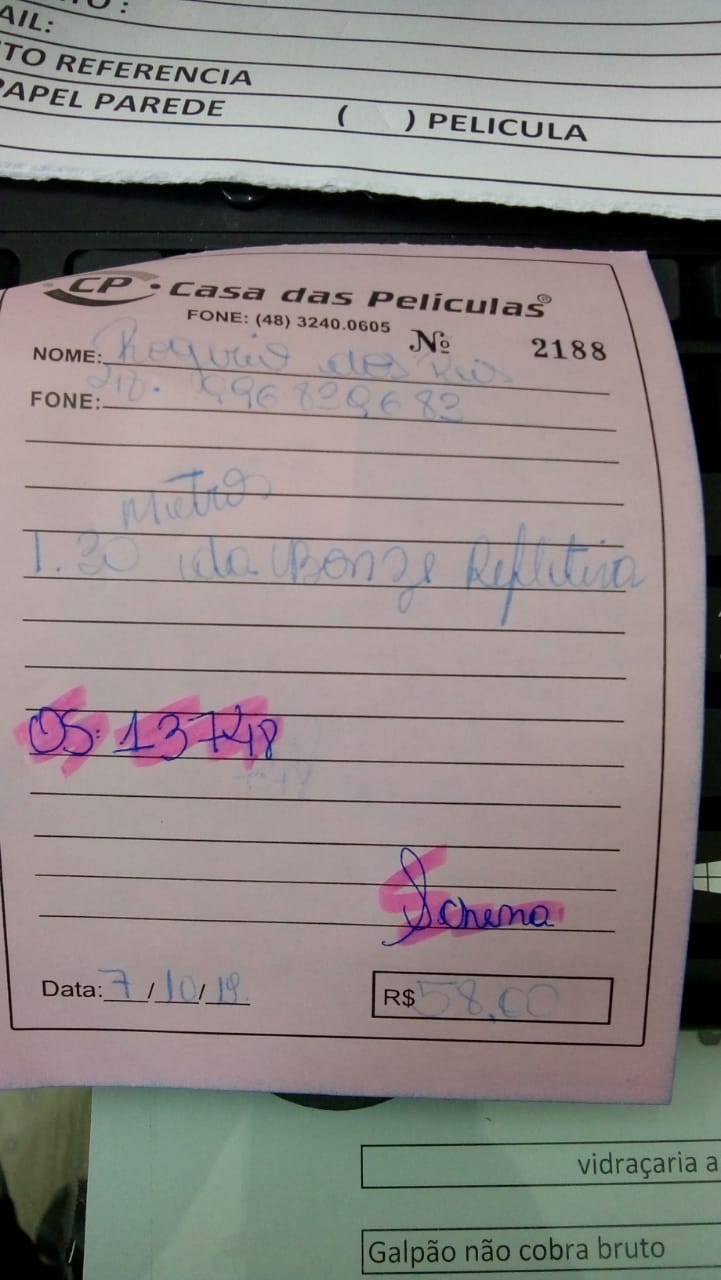 AIL:
TO REFERENCIA
APEL PAREDE ( ) PELICULA
CP Casa das Películas®
FONE: (48) 3240.0605 Nº 2188
NOME: dos
FONE: 996839683
Metros
1.30 da Bonze Refletiva
OS: 13748
Schena
Data: 7/10/19
R$ 58,00
vidraçaria a
Galpão não cobra bruto